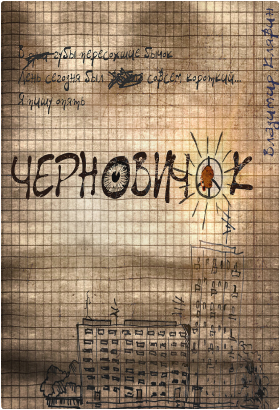 В губы пересохшие бычок
День сегодня был совсем короткий...
Я пишу опять
ЧЕРНОВИЧОК
Владимир Кларин